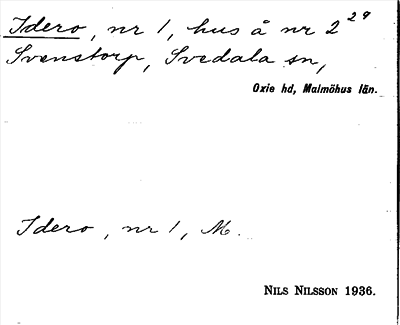 Idero, nr 1, hus å nr 2 29
Svenstorp, Svedala sn,
Oxie hd, Malmöhus län.
Idero, nr 1, M.
NILS NILSSON 1936.